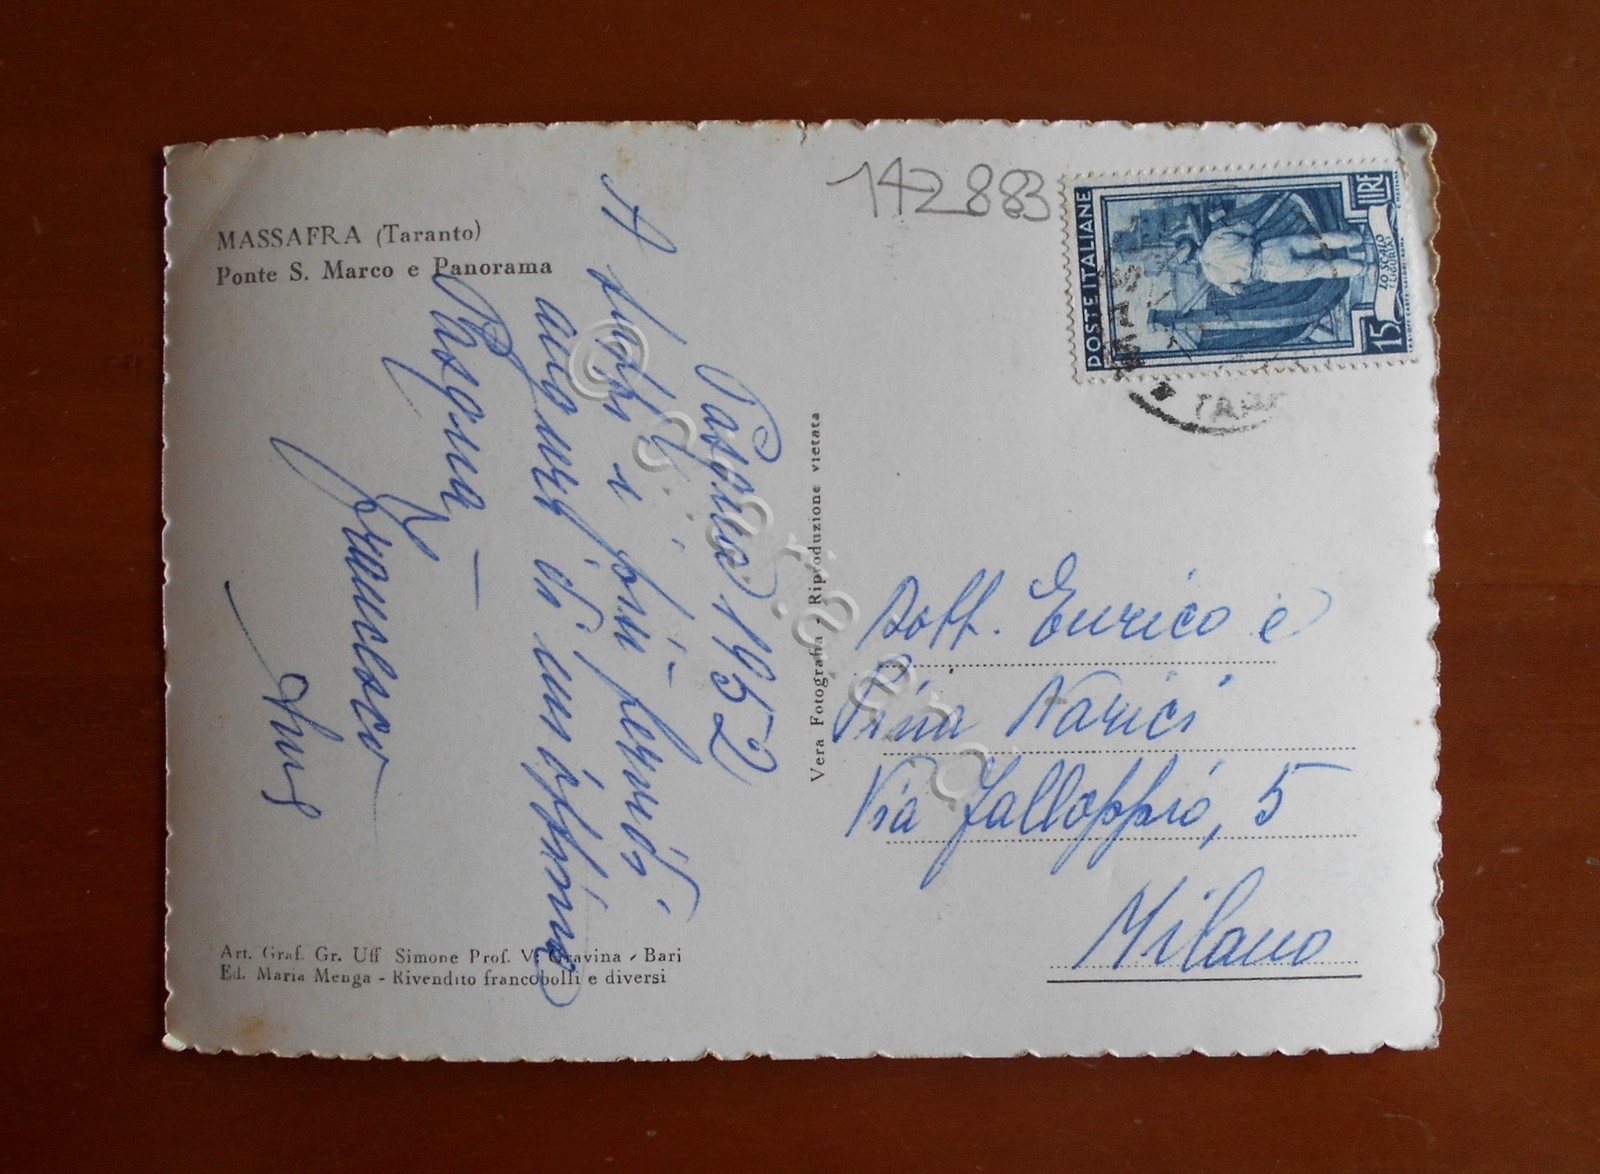 MASSAFRA (Taranto)
Ponte S. Marco e Panorama
142883
POSTE ITALIANE
LIRE
15
LO SCALO
LIGURIA
TARA
Pasqua 1952
A i più fervidi
auguri di un'ottima
Pasqua -
Francesco
Vera Fotografia - Riproduzione vietata
Dott. Enrico e
Pina Narici
Via Falloppio, 5
Milano
Art. Graf. Gr. Uff Simone Prof. V. Gravina - Bari
Ed. Maria Menga - Rivendito francobolli e diversi